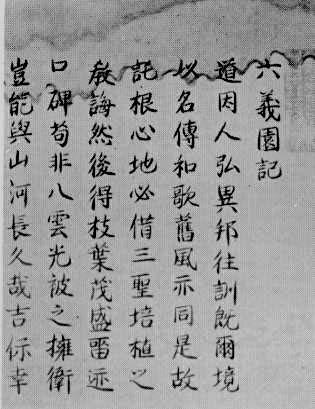 六義園記
道因人弘異邦往訓既爾境
以名傳和歌舊風亦同是故
託根心地必借三聖培植之
教誨然後得枝葉茂盛畱迹
口碑苟非八雲光被之擁衛
豈能與山河長久哉吉保幸